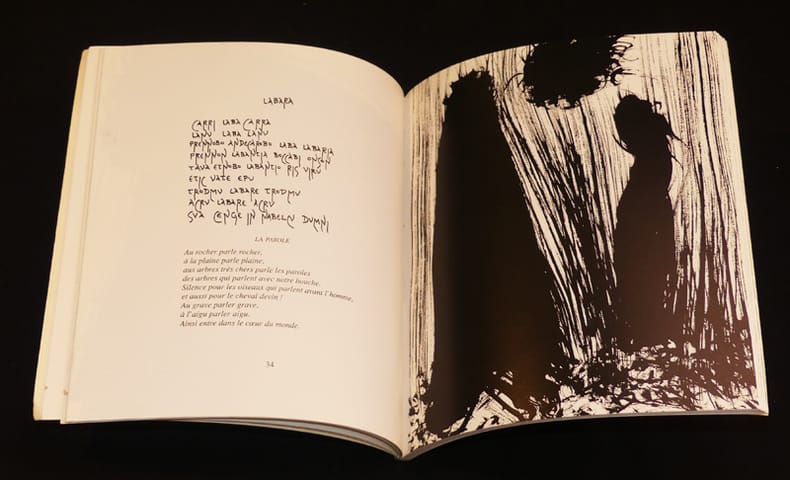 LABARA
CARRI LABA CARRA
LANU LABA LANU
PRENNOBO ANDECAROBO LABA LABARIA
PRENNON LABANTIA BOCCABI ONSON
TAUA ETNOBO LABANTIO RIS VIRU
ETIC VATE EPU
TRODMU LABARE TRODMU
ACRU LABARE ACRU
SUA CENGE IN NABELCU DUMNI
LA PAROLE
Au rocher parle rocher,
à la plaine parle plaine,
aux arbres très chers parle les paroles
des arbres qui parlent avec notre bouche.
Silence pour les oiseaux qui parlent avant l'homme,
et aussi pour le cheval devin !
Au grave parler grave,
à l'aigu parler aigu.
Ainsi entre dans le cœur du monde.
34